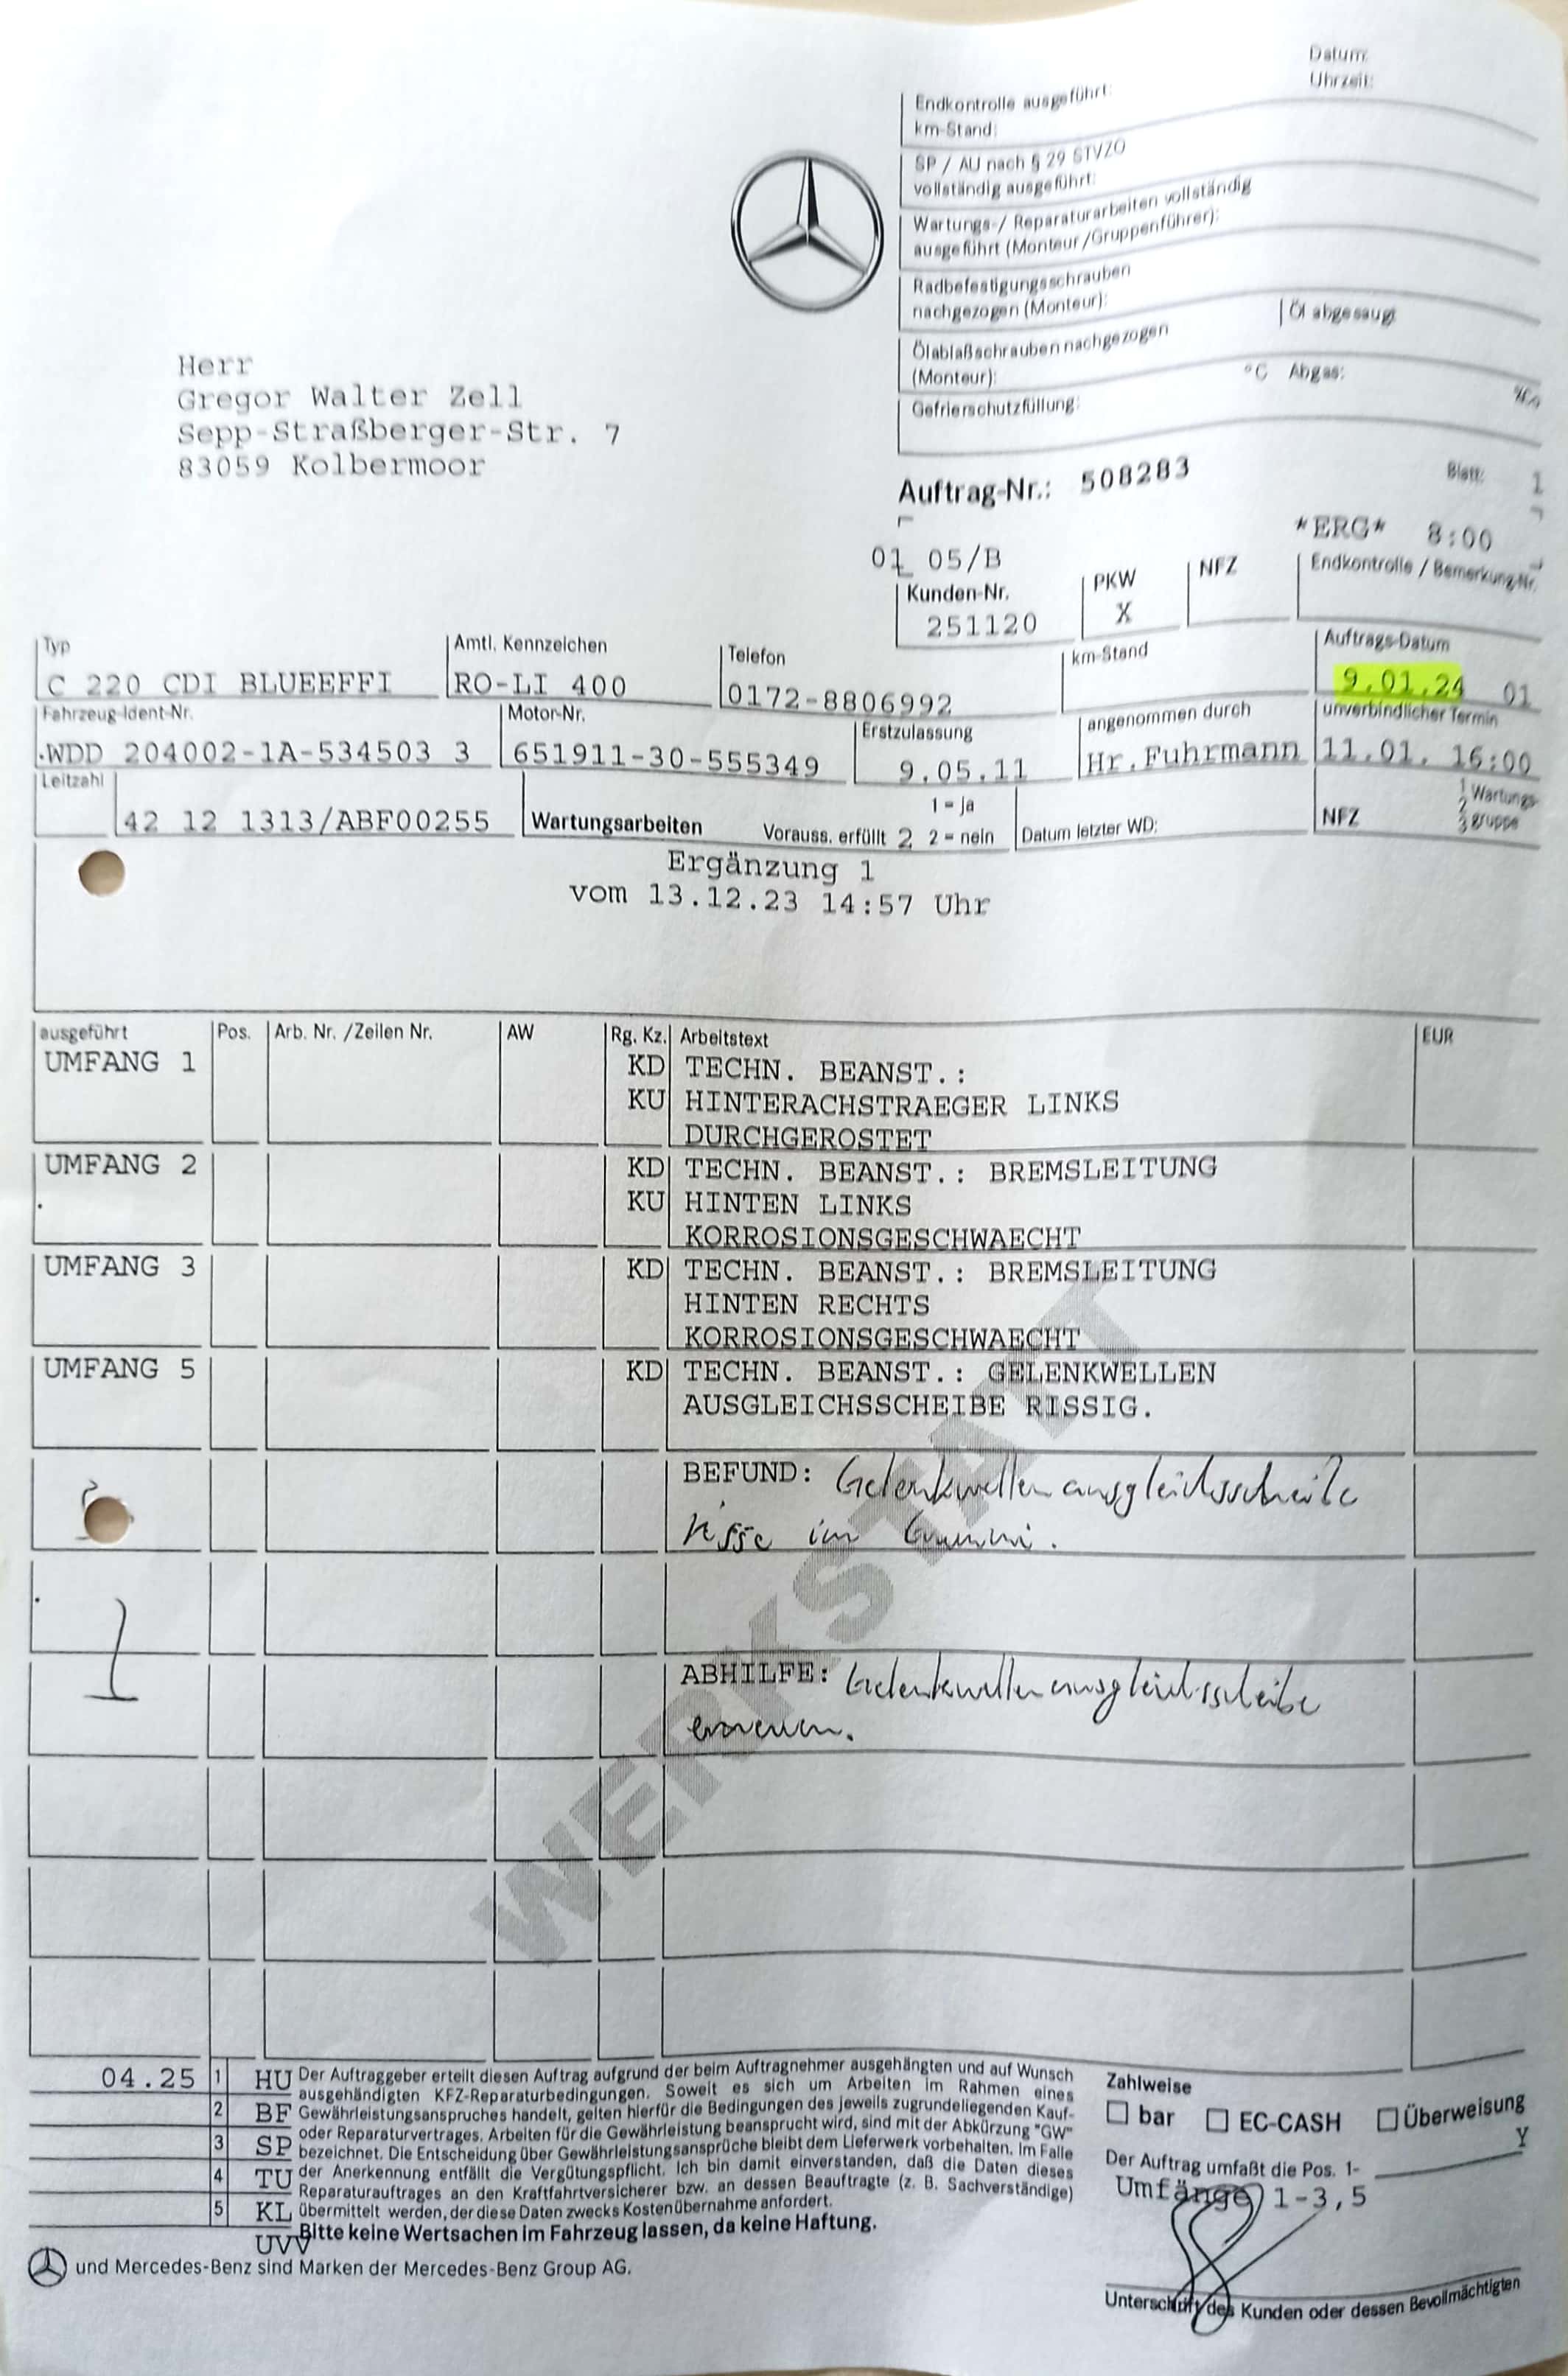 Datum:
Uhrzeit:
Endkontrolle ausgeführt:
km-Stand:
SP / AU nach § 29 STVZO
vollständig ausgeführt:
Wartungs-/ Reparaturarbeiten vollständig
ausgeführt (Monteur/Gruppenführer):
Radbefestigungsschrauben
nachgezogen (Monteur):
Ölablaßschrauben nachgezogen
(Monteur):
Öl abgesaugt
Gefrierschutzfüllung:
°C Abgas:
Herr
Gregor Walter Zell
Sepp-Straßberger-Str. 7
83059 Kolbermoor
Auftrag-Nr.: 508283
Blatt: 1
*ERG* 8:00
01 05/B
Kunden-Nr.
251120
PKW
X
NFZ
Endkontrolle / Bemerkung-Nr.
Typ
C 220 CDI BLUEEFFI
Amtl. Kennzeichen
RO-LI 400
Telefon
0172-8806992
km-Stand
Auftrags-Datum
9.01.24 01
Fahrzeug-Ident-Nr.
WDD 204002-1A-534503 3
Motor-Nr.
651911-30-555349
Erstzulassung
9.05.11
angenommen durch
Hr.Fuhrmann
unverbindlicher Termin
11.01. 16:00
Leitzahl
42 12 1313/ABF00255
Wartungsarbeiten
Vorauss. erfüllt 2
1 = ja
2 = nein
Datum letzter WD:
NFZ
1 Wartungs-
2
3 gruppe
Ergänzung 1
vom 13.12.23 14:57 Uhr
ausgeführt Pos. Arb. Nr. /Zeilen Nr. AW Rg. Kz. Arbeitstext EUR
UMFANG 1 KD TECHN. BEANST.:
KU HINTERACHSTRAEGER LINKS
DURCHGEROSTET
UMFANG 2 KD TECHN. BEANST.: BREMSLEITUNG
KU HINTEN LINKS
KORROSIONSGESCHWAECHT
UMFANG 3 KD TECHN. BEANST.: BREMSLEITUNG
HINTEN RECHTS
KORROSIONSGESCHWAECHT
UMFANG 5 KD TECHN. BEANST.: GELENKWELLEN
AUSGLEICHSSCHEIBE RISSIG.
BEFUND: Gelenkwellenausgleichsscheibe
risse im Gummi.
ABHILFE: Gelenkwellenausgleichsscheibe
erneuern.
WERKSTATT
04.25 1 HU
2 BF
3 SP
4 TU
5 KL
UVV
Der Auftraggeber erteilt diesen Auftrag aufgrund der beim Auftragnehmer ausgehängten und auf Wunsch
ausgehändigten KFZ-Reparaturbedingungen. Soweit es sich um Arbeiten im Rahmen eines
Gewährleistungsanspruches handelt, gelten hierfür die Bedingungen des jeweils zugrundeliegenden Kauf-
oder Reparaturvertrages. Arbeiten für die Gewährleistung beansprucht wird, sind mit der Abkürzung "GW"
bezeichnet. Die Entscheidung über Gewährleistungsansprüche bleibt dem Lieferwerk vorbehalten. Im Falle
der Anerkennung entfällt die Vergütungspflicht. Ich bin damit einverstanden, daß die Daten dieses
Reparaturauftrages an den Kraftfahrtversicherer bzw. an dessen Beauftragte (z. B. Sachverständige)
übermittelt werden, der diese Daten zwecks Kostenübernahme anfordert.
Bitte keine Wertsachen im Fahrzeug lassen, da keine Haftung.
Zahlweise
bar EC-CASH Überweisung
Y
Der Auftrag umfaßt die Pos. 1-
Umfänge 1-3,5
Unterschrift des Kunden oder dessen Bevollmächtigten
und Mercedes-Benz sind Marken der Mercedes-Benz Group AG.